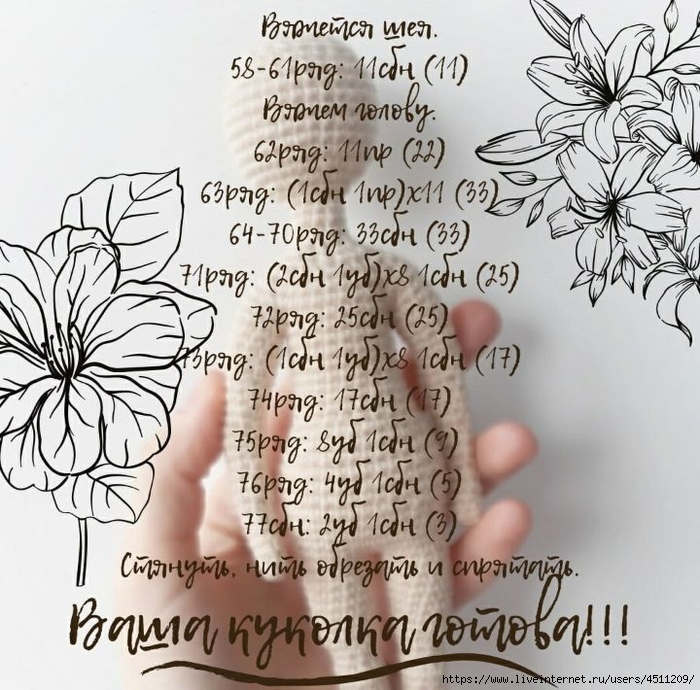 Вяжется шея.
58-61ряд: 11сбн (11)
Вяжем голову.
62ряд: 11пр (22)
63ряд: (1сбн 1пр)х11 (33)
64-70ряд: 33сбн (33)
71ряд: (2сбн 1уб)х8 1сбн (25)
72ряд: 25сбн (25)
73ряд: (1сбн 1уб)х8 1сбн (17)
74ряд: 17сбн (17)
75ряд: 8уб 1сбн (9)
76ряд: 4уб 1сбн (5)
77сбн: 2уб 1сбн (3)
Стянуть, нить обрезать и спрятать.
Ваша куколка готова!!!
https://www.liveinternet.ru/users/4511209/